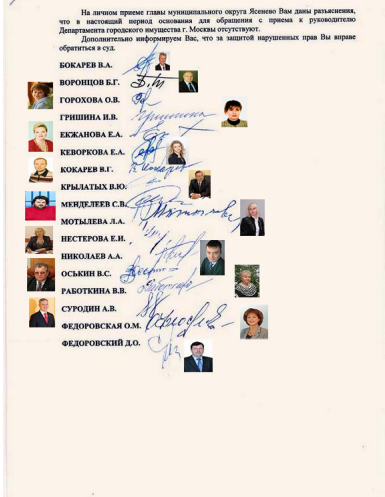 На личном приеме главы муниципального округа Ясенево Вам даны разъяснения,
что в настоящий период основания для обращения с приема к руководителю
Департамента городского имущества г. Москвы отсутствуют.
Дополнительно информируем Вас, что за защитой нарушенных прав Вы вправе
обратиться в суд.
БОКАРЕВ В.А.
ВОРОНЦОВ Б.Г.
ГОРОХОВА О.В.
ГРИШИНА И.В. Гришина
ЕКЖАНОВА Е.А.
КЕВОРКОВА Е.А.
КОКАРЕВ В.Г. Кокарев
КРЫЛАТЫХ В.Ю.
МЕНДЕЛЕЕВ С.В.
МОТЫЛЕВА Л.А.
НЕСТЕРОВА Е.И.
НИКОЛАЕВ А.А.
ОСЬКИН В.С.
РАБОТКИНА В.В.
СУРОДИН А.В.
ФЕДОРОВСКАЯ О.М.
ФЕДОРОВСКИЙ Д.О.